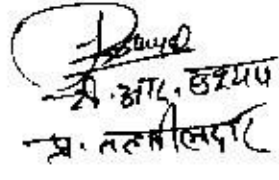 डी. आर. कश्यप
प्र. तहसीलदार